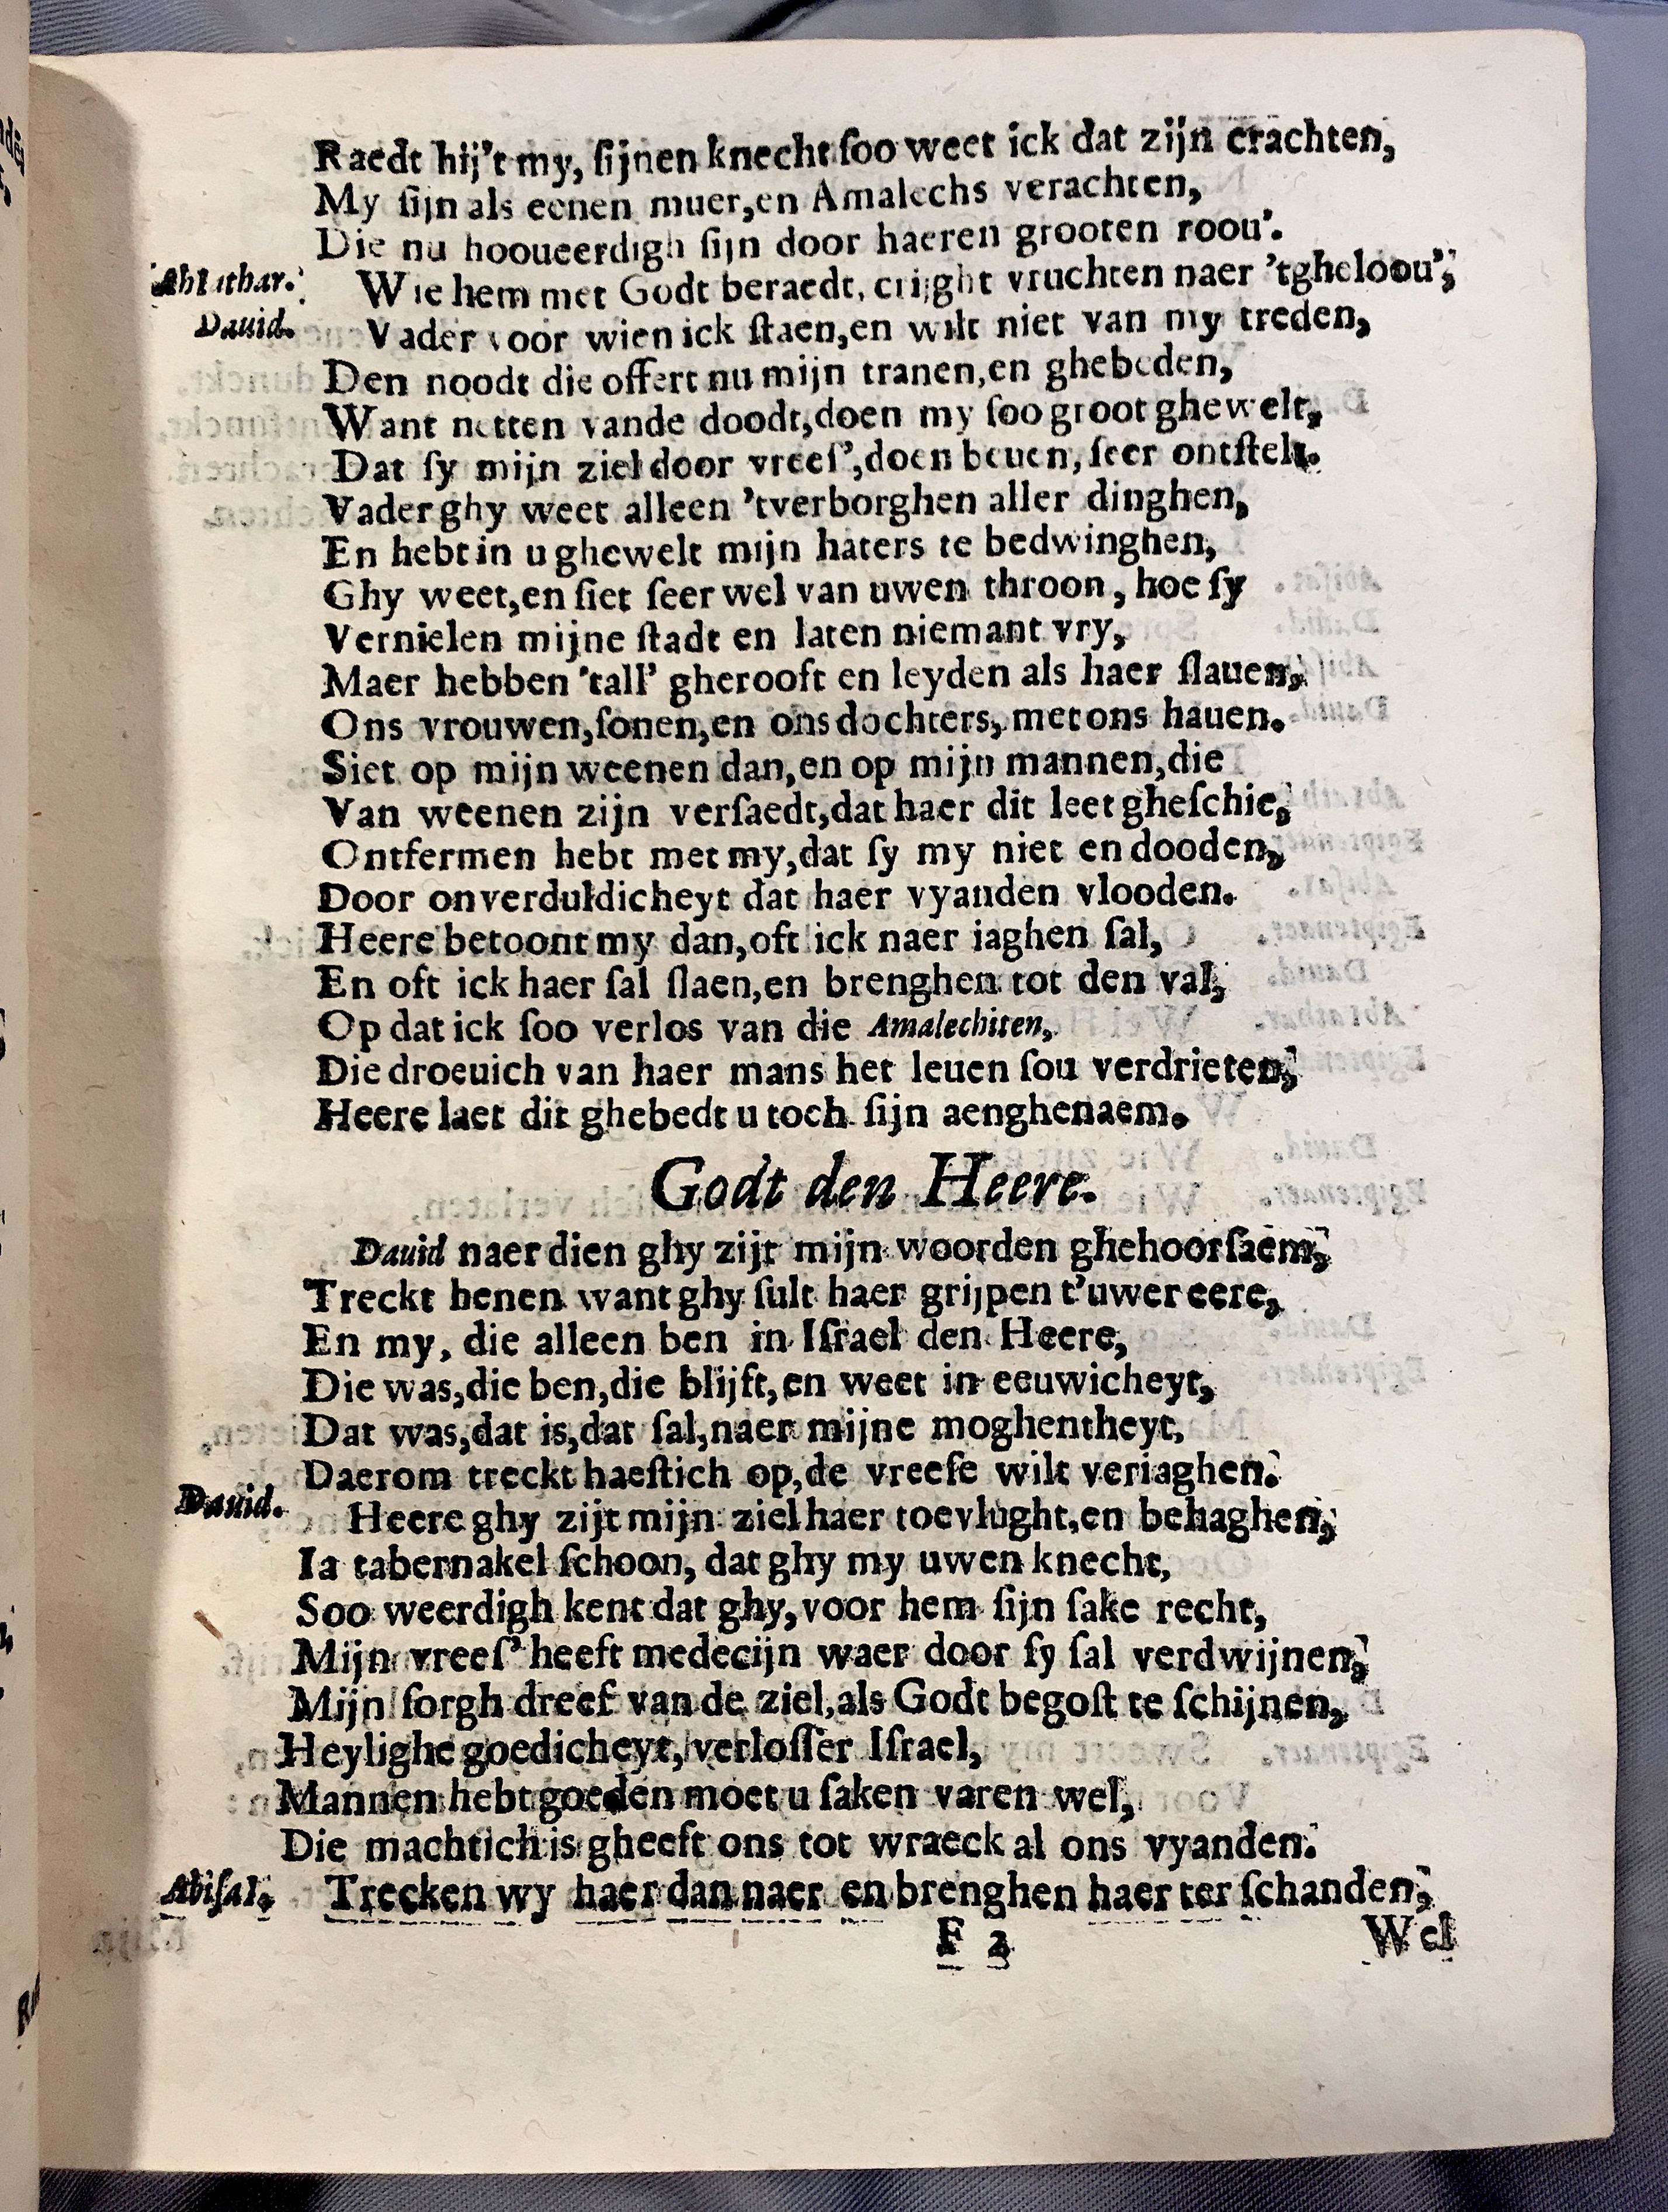 Raedt hij't my, ſijnen knecht ſoo weet ick dat zijn crachten,
My ſijn als eenen muer, en Amalechs verachten,
Die nu hooueerdigh ſijn door haeren grooten roou'.
Abiathar. Wie hem met Godt beraedt, crijght vruchten naer 'tgheloou',
Dauid. Vader voor wien ick ſtaen, en wilt niet van my treden,
Den noodt die offert nu mijn tranen, en ghebeden,
Want netten vande doodt, doen my ſoo groot ghewelt,
Dat ſy mijn ziel door vreeſ', doen beuen, ſeer ontſtelt.
Vader ghy weet alleen 'tverborghen aller dinghen,
En hebt in u ghewelt mijn haters te bedwinghen,
Ghy weet, en ſiet ſeer wel van uwen throon, hoe ſy
Vernielen mijne ſtadt en laten niemant vry,
Maer hebben 'tall' gherooft en leyden als haer ſlauen,
Ons vrouwen, ſonen, en ons dochters, met ons hauen.
Siet op mijn weenen dan, en op mijn mannen, die
Van weenen zijn verſaedt, dat haer dit leet gheſchie,
Ontfermen hebt met my, dat ſy my niet en dooden,
Door onverduldicheyt dat haer vyanden vlooden.
Heere betoont my dan, oft ick naer iaghen ſal,
En oft ick haer ſal ſlaen, en brenghen tot den val,
Op dat ick ſoo verlos van die Amalechiten,
Die droeuich van haer mans het leuen ſou verdrieten,
Heere laet dit ghebedt u toch ſijn aenghenaem.
Godt den Heere.
Dauid naer dien ghy zijt mijn woorden ghehoorſaem,
Treckt henen want ghy ſult haer grijpen t'uwer eere,
En my, die alleen ben in Iſrael den Heere,
Die was, die ben, die blijft, en weet in eeuwicheyt,
Dat was, dat is, dat ſal, naer mijne moghentheyt,
Daerom treckt haeſtich op, de vreeſe wilt veriaghen.
Dauid. Heere ghy zijt mijn ziel haer toevlught, en behaghen,
Ia tabernakel ſchoon, dat ghy my uwen knecht,
Soo weerdigh kent dat ghy, voor hem ſijn ſake recht,
Mijn vreeſ' heeft medecijn waer door ſy ſal verdwijnen,
Mijn ſorgh dreef van de ziel, als Godt begoſt te ſchijnen,
Heylighe goedicheyt, verloſſer Iſrael,
Mannen hebt goeden moet u ſaken varen wel,
Die machtich is gheeft ons tot wraeck al ons vyanden.
Abiſai. Trecken wy haer dan naer en brenghen haer ter ſchanden,
F 3 Wel